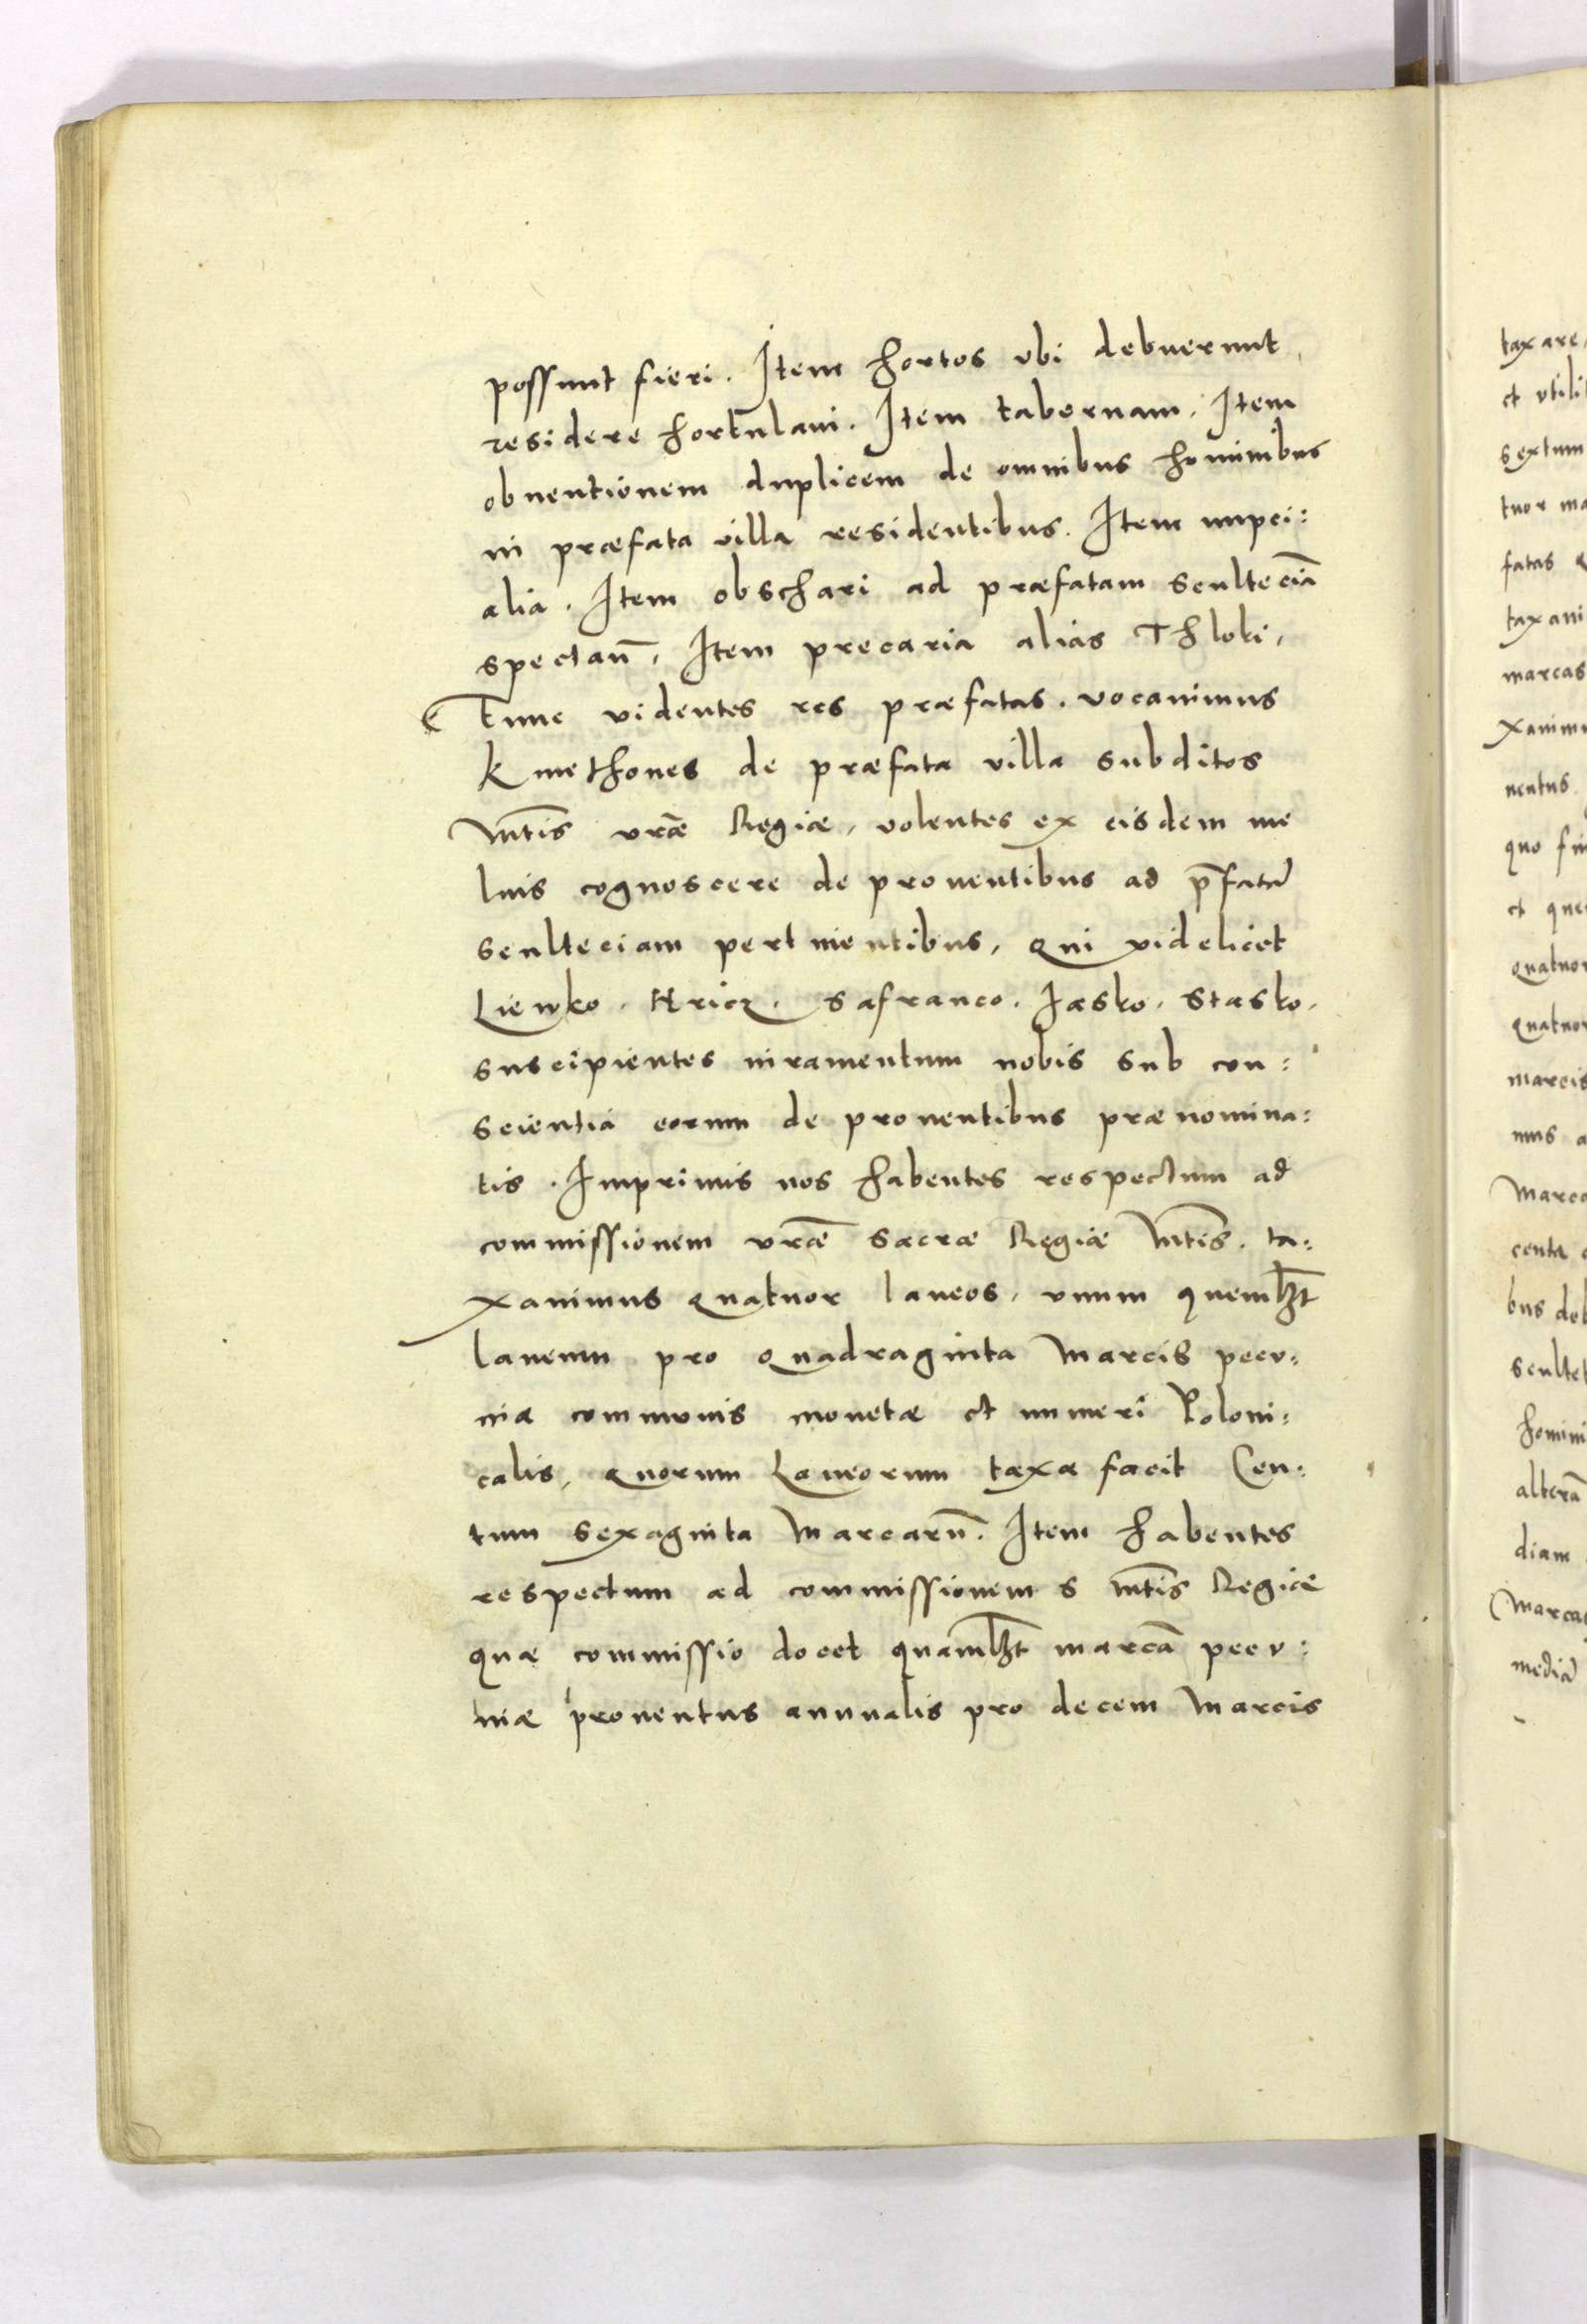 possunt fieri. Item hortos vbi debuerunt
residere hortulani. Item tabernam. Item
obuentionem duplicem de omnibus hominibus
in præfata villa residentibus. Item impci:
alia. Item obschari ad præfatam sculteciã
spectañ. Item precaria alias Thloki,
Tunc videntes res præfatas. vocauimus
Kmethones de præfata villa subditos
Mtis vræ Regiæ, volentes ex eisdem me
lius cognoscere de prouentibus ad p̄fatã
sculteciam pertinentibus, qui videlicet
Lienko. Hricz. Safranco. Jasko. Stasko.
suscipientes iuramentum nobis sub con:
scientia eorum de prouentibus prænomina:
tis. Imprimis nos habentes respectum ad
commissionem vræ Sacræ Regiæ Mtis. ta:
xauimus quatuor laneos, vnum quemlꝫt
laneum pro quadraginta marcis pecu:
niæ communis monetæ et numeri Poloni:
calis, quorum Laneorum taxa facit Cen:
tum sexaginta marcarũ. Item habentes
respectum ad commissionem S Mtis Regiæ
quæ commissio docet quamlꝫt marcã pecu:
niæ prouentus annualis pro decem marcis
taxare,
et vtili
sextum
tuor ma
fatas q
taxaui
marcas
xauimu
uentus.
quo fu
et que
quatuor
quatuor
marcis
mus a
Marca
centa
bus deb
scultet
homini
alterã
diam
Marcas
mediã